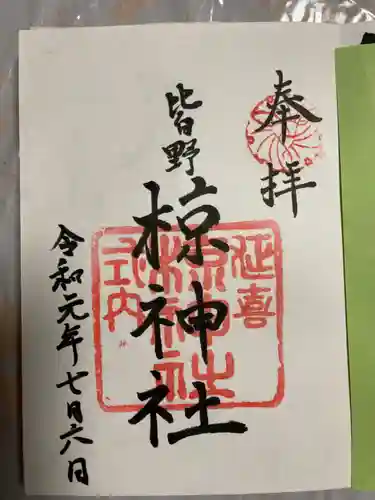 奉拝
皆野
椋神社
延喜
椋神社
式内
令和元年七月六日